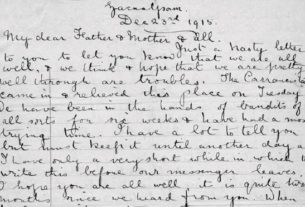 Dec 23rd 1915.
My dear Father & Mother & Ell.
Just a hasty letter
to you to let you know that we are all
well, & we think & hope that we are pretty
well through are troubles. The Carranzistas
came in & relieved this place on Tuesday
We have been in the hands of bandits of
all sorts for six weeks & have had a most
trying time. I have a lot to tell you
but must keep it until another day as
I have only a very short while in which to
write this before our messenger leaves.
I hope you are all well it is quite two
months since we heard from you. When